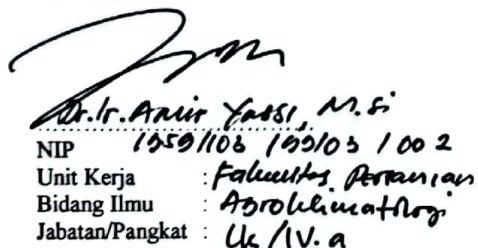 Dr. Ir. Amir Yassi, M.Si
NIP 19591103 199103 1 002
Unit Kerja : Fakultas Pertanian
Bidang Ilmu : Agroklimatologi
Jabatan/Pangkat : Lk/IV.a